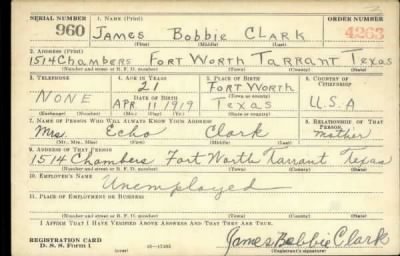 SERIAL NUMBER 1. NAME (Print) ORDER NUMBER
960 James Bobbie Clark 4263
(First) (Middle) (Last)
2. ADDRESS (Print)
1514 Chambers Fort Worth Tarrant Texas
(Number and street or R. F. D. number) (Town) (County) (State)
3. TELEPHONE 4. AGE IN YEARS 5. PLACE OF BIRTH 6. COUNTRY OF CITIZENSHIP
21 Fort Worth
NONE DATE OF BIRTH (Town or county)
APR 1 1919 Texas U.S.A
(Exchange) (Number) (Mo.) (Day) (Yr.) (State or country)
7. NAME OF PERSON WHO WILL ALWAYS KNOW YOUR ADDRESS 8. RELATIONSHIP OF THAT PERSON
Mrs. Echo Clark mother
(Mr., Mrs., Miss) (First) (Middle) (Last)
9. ADDRESS OF THAT PERSON
1514 Chambers Fort Worth Tarrant Texas
(Number and street or R. F. D. number) (Town) (County) (State)
10. EMPLOYER'S NAME
Unemployed
11. PLACE OF EMPLOYMENT OR BUSINESS
(Number and street or R. F. D. number) (Town) (County) (State)
I AFFIRM THAT I HAVE VERIFIED ABOVE ANSWERS AND THAT THEY ARE TRUE.
REGISTRATION CARD James Bobbie Clark
D. S. S. Form 1 (over) (Registrant's signature)